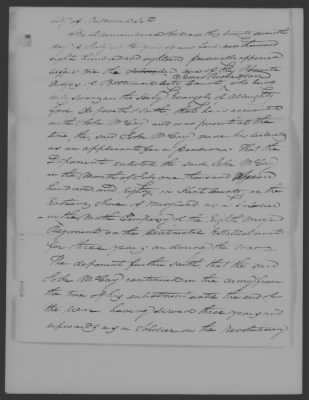 City of Baltimore Sct
Be it remembered that on this twenty seventh
day of July in the year of our Lord one thousand
eight hundred and eighteen personally appeared
before me the subscriber one of the Justices
Peace of Baltimore City Court who being
duly sworn on the Holy Evangely of Almighty
God deposeth & saith, that he is acquainted
with John McCay and was present at the
time, the said John McCay made his declaration
as an applicant for a pension. That the
Deponent enlisted the said John McCay
in the Month of July one thousand seven
hundred and eighty in Kent County on the
Eastern Shore of Maryland as a Soldier
in the Company of the Maryland
Regiment on the Continental Establishment
for three years or during the war.
The deponent further saith, that the said
John McCay continued in the army from
the time of his enlistment until the end of
the war having served three years and
upwards as a soldier in the Revolutionary